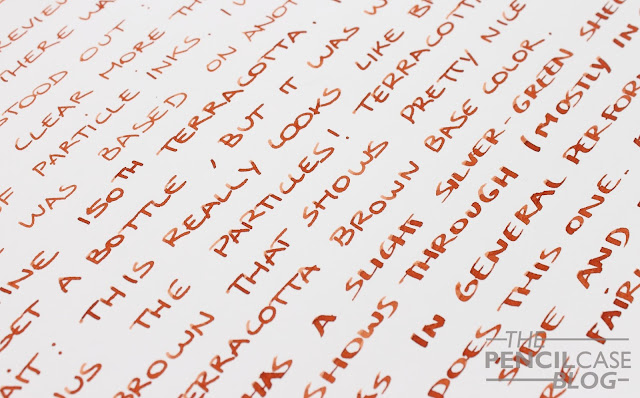 REVIEW
THERE WA
STOOD OUT
CLEAR MORE TH
OF PARTICLE INKS. I
WAS BASED ON ANOT
INE 150TH TERRACOTTA
GET A BOTTLE, BUT IT WAS W
AIT: THIS REALLY LOOKS LIKE B
US THE PARTICLES! TERRACOTTA
BROWN THAT SHOWS PRETTY NICE
TERRACOTTA BROWN BASE COLOR.
HAS A SLIGHT SILVER-GREEN SHEE
SHOWS THROUGH (MOSTLY IN
KS IN GENERAL PERFOR
DOES THIS ONE.
SIDE AND
RE FAIR
THE
PENCILCASE
BLOG